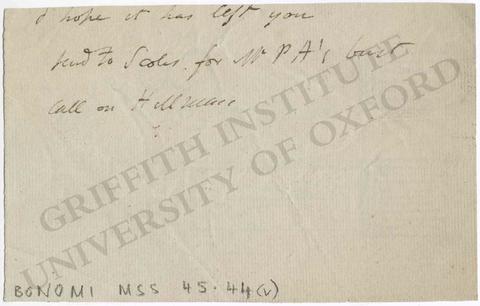 I hope it has left you
send to Scoles for Mr P A's bust
call on Hillman
GRIFFITH INSTITUTE
UNIVERSITY OF OXFORD
BONOMI MSS 45.44(v)